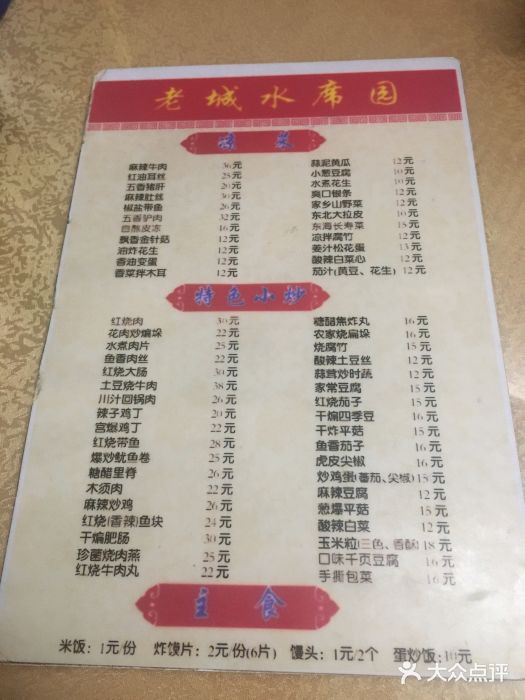 老城水席园
凉菜
麻辣牛肉 36元
红油耳丝 25元
五香猪肝 20元
麻辣肚丝 30元
椒盐带鱼 26元
五香驴肉 32元
自熬皮冻 16元
飘香金针菇 12元
油炸花生 12元
香油变蛋 12元
香菜拌木耳 12元
蒜泥黄瓜 12元
小葱豆腐 10元
水煮花生 10元
爽口银条 12元
家乡山野菜 12元
东北大拉皮 10元
东海长寿菜 15元
凉拌腐竹 12元
姜汁松花蛋 13元
酸辣白菜心 12元
茄汁(黄豆、花生) 12元
特色小炒
红烧肉 36元
花肉炒煸垛 22元
水煮肉片 25元
鱼香肉丝 22元
红烧大肠 30元
土豆烧牛肉 38元
川汁回锅肉 26元
辣子鸡丁 20元
宫爆鸡丁 22元
红烧带鱼 28元
爆炒鱿鱼卷 25元
糖醋里脊 26元
木须肉 22元
麻辣炒鸡 26元
红烧(香辣)鱼块 24元
干煸肥肠 30元
珍菌烧肉燕 25元
红烧牛肉丸 22元
糖醋焦炸丸 16元
农家烧扁垛 16元
烧腐竹 15元
酸辣土豆丝 12元
蒜茸炒时蔬 12元
家常豆腐 15元
红烧茄子 15元
干煸四季豆 16元
干炸平菇 15元
鱼香茄子 16元
虎皮尖椒 16元
炒鸡蛋(番茄、尖椒) 15元
麻辣豆腐 12元
葱爆平菇 15元
酸辣白菜 12元
玉米粒(三色、香酥) 18元
口味千页豆腐 16元
手撕包菜 16元
主食
米饭：1元/份 炸馍片：2元/份(6片) 馒头：1元/2个 蛋炒饭：10元
大众点评